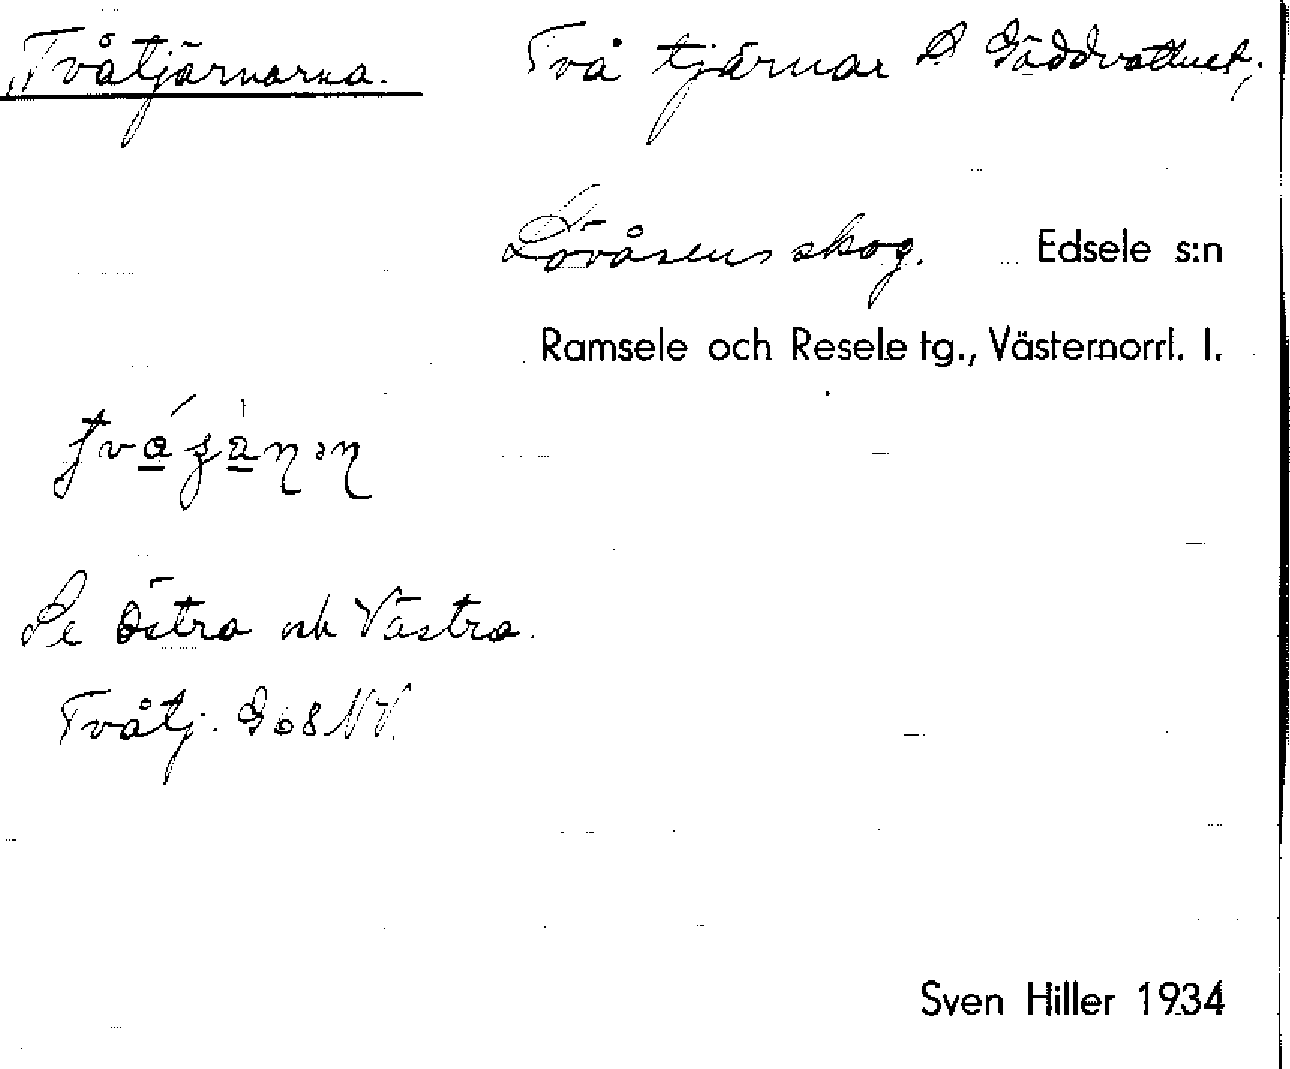 Tvåtjärnarna. Två tjärnar S Gäddvattnet;
Lövåsens skog. Edsele s:n
Ramsele och Resele tg., Västernorrl. l.
Se Östra och Västra.
Tvåtj. G68NV.
Sven Hiller 1934